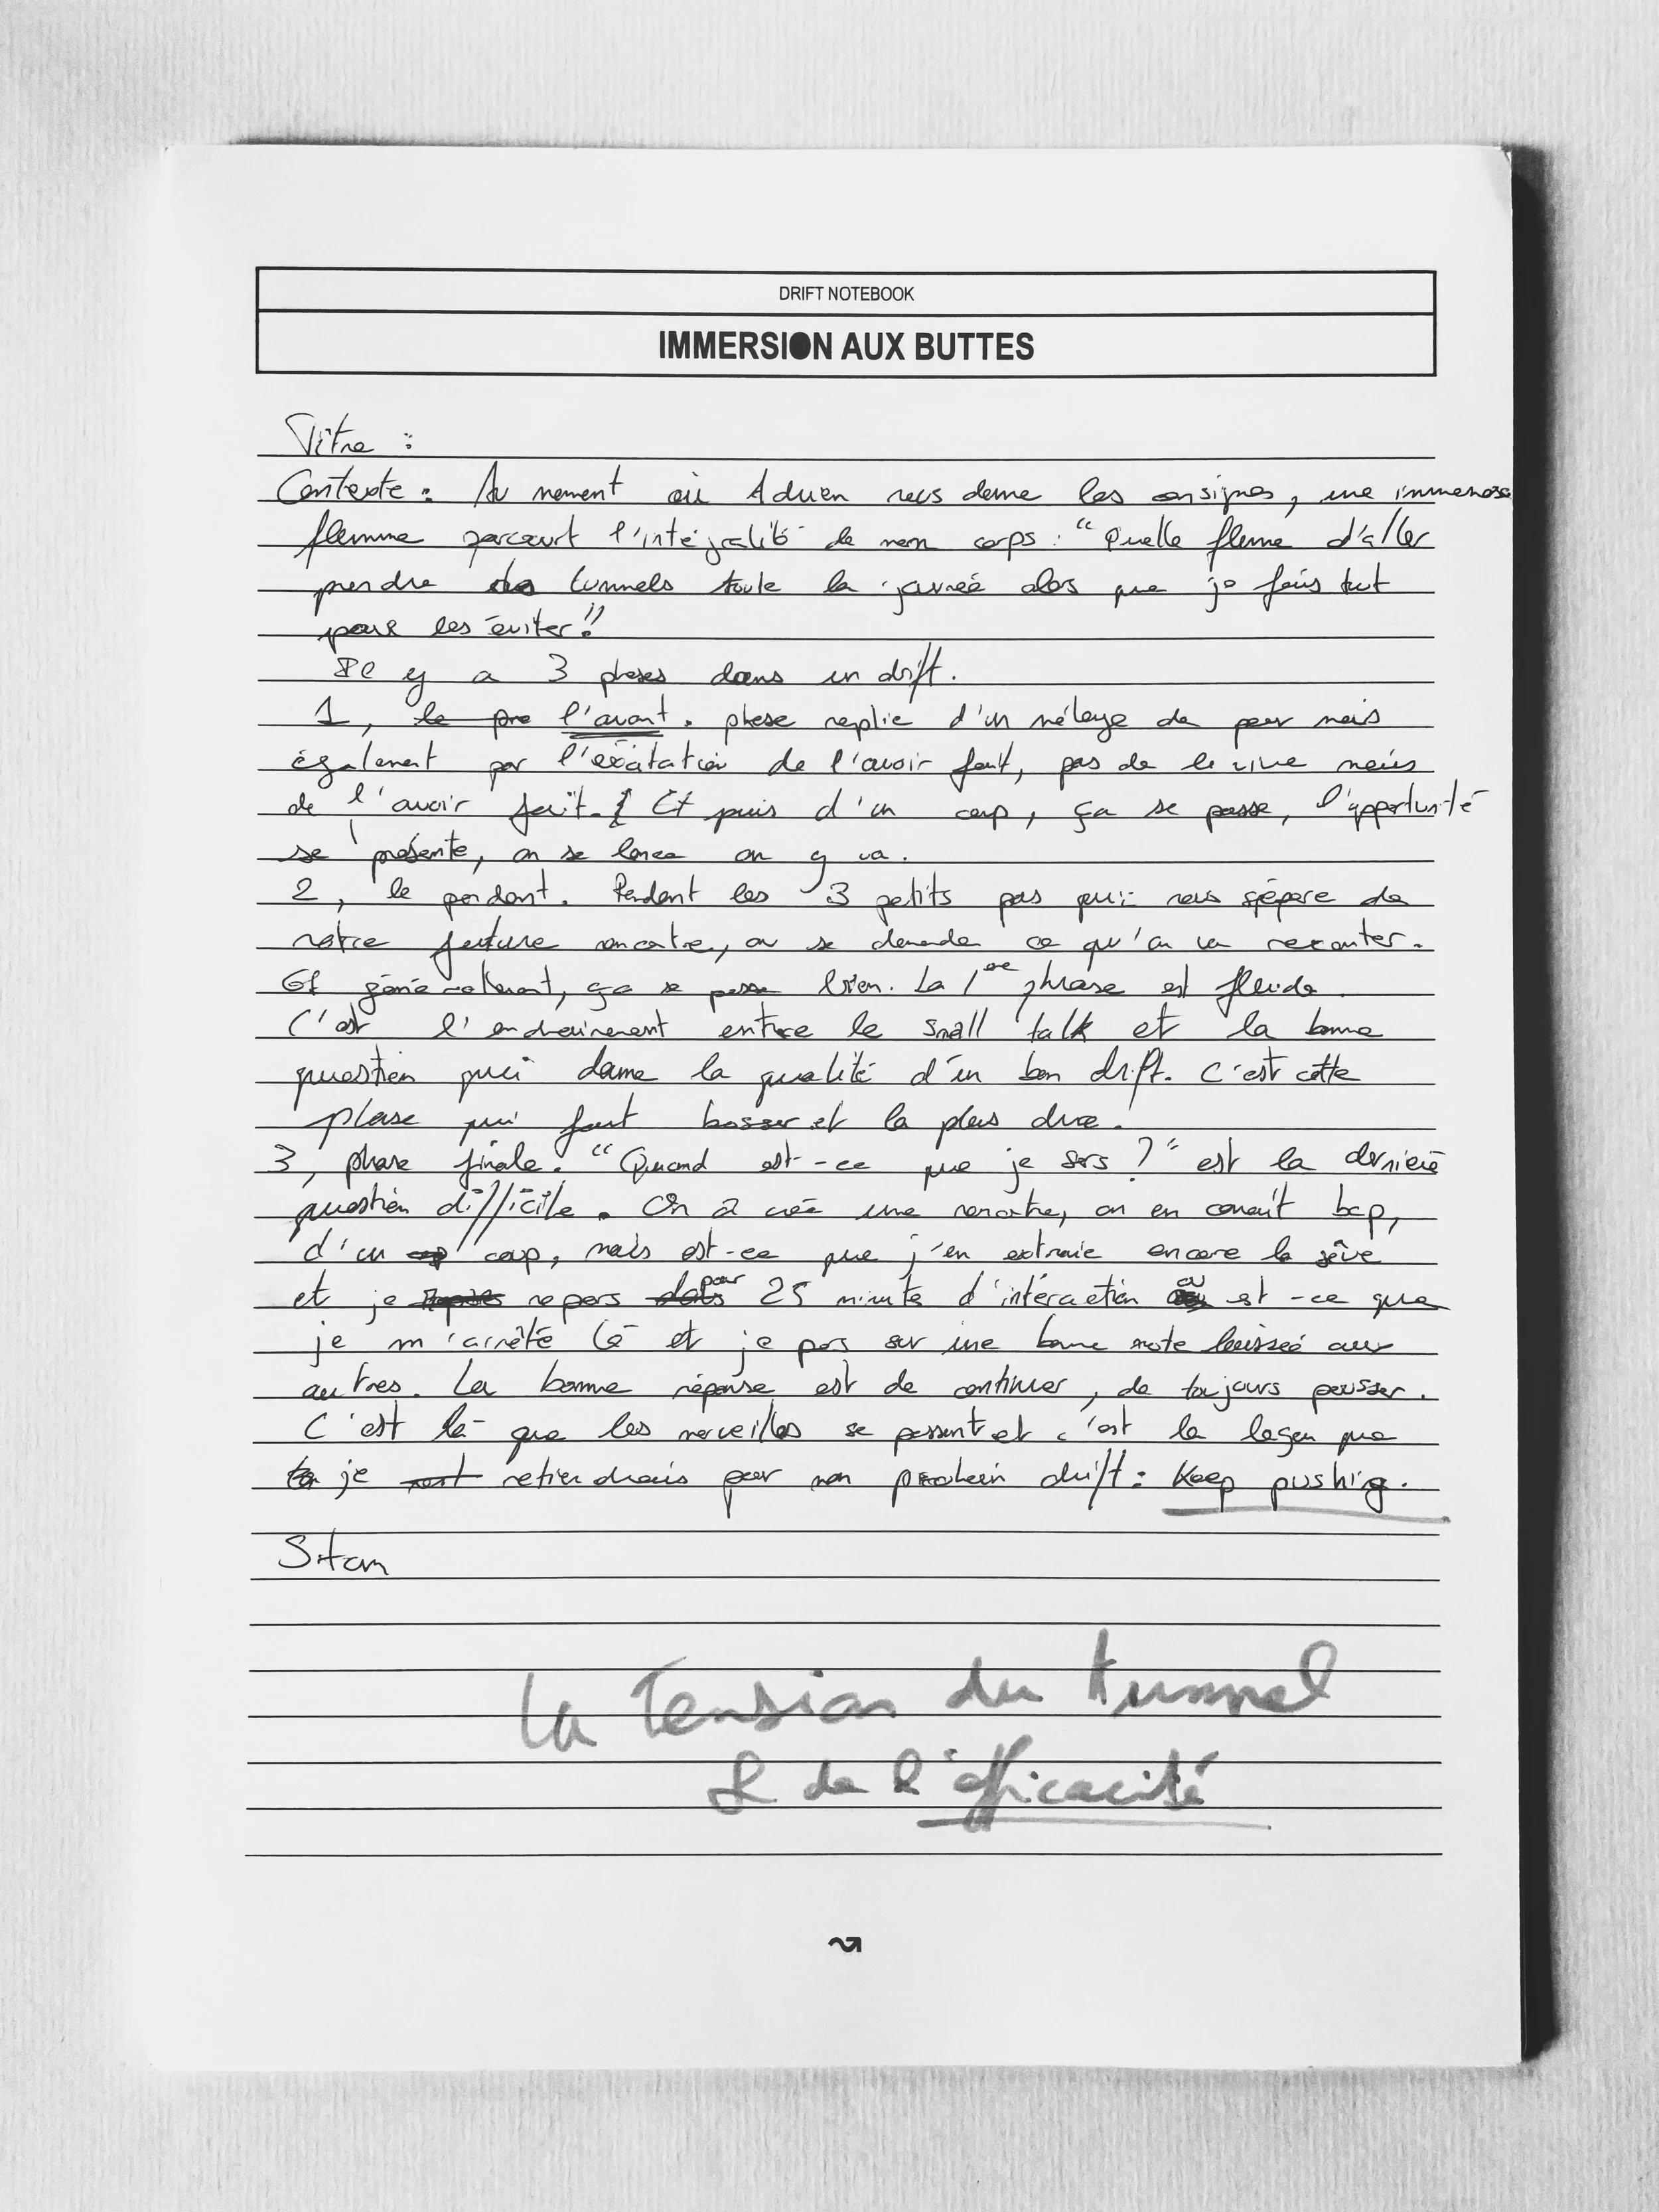 DRIFT NOTEBOOK
IMMERSION AUX BUTTES
Titre :
Contexte : Au moment où Adrien nous donne les consignes, une immense
flemme parcourt l'intégralité de mon corps : "Quelle flemme d'aller
prendre des tunnels toute la journée alors que je fais tout
pour les éviter !"
Il y a 3 phases dans un drift.
1, le pre l'avant. phase remplie d'un mélange de peur mais
également par l'éxcitation de l'avoir fait, pas de le vivre mais
de l'avoir fait. Et puis d'un coup, ça se passe, l'opportunité
se présente, on se lance on y va.
2, le pendant. Pendant les 3 petits pas qui nous sépare de
notre future rencontre, on se demande ce qu'on va raconter.
Et généralement, ça se passe bien. La 1ère phrase est fluide.
C'est l'enchainement entre le small talk et la bonne
question qui donne la qualité d'un bon drift. C'est cette
phase qui faut bosser et la plus dure.
3, phase finale. "Quand est-ce que je sors ?" est la dernière
question difficile. On a créé une rencontre, on en connait bcp,
d'un coup, mais est-ce que j'en extraie encore la sève
et je repars pour 25 minute d'intéraction ou est-ce que
je m'arrêté là et je pars sur une bonne note laissée aux
autres. La bonne réponse est de continuer, de toujours pousser.
C'est là que les merveilles se passent et c'est la leçon que
je retiendrais pour mon prochain drift : Keep pushing.
Stan
La Tension du tunnel
& de l'efficacité